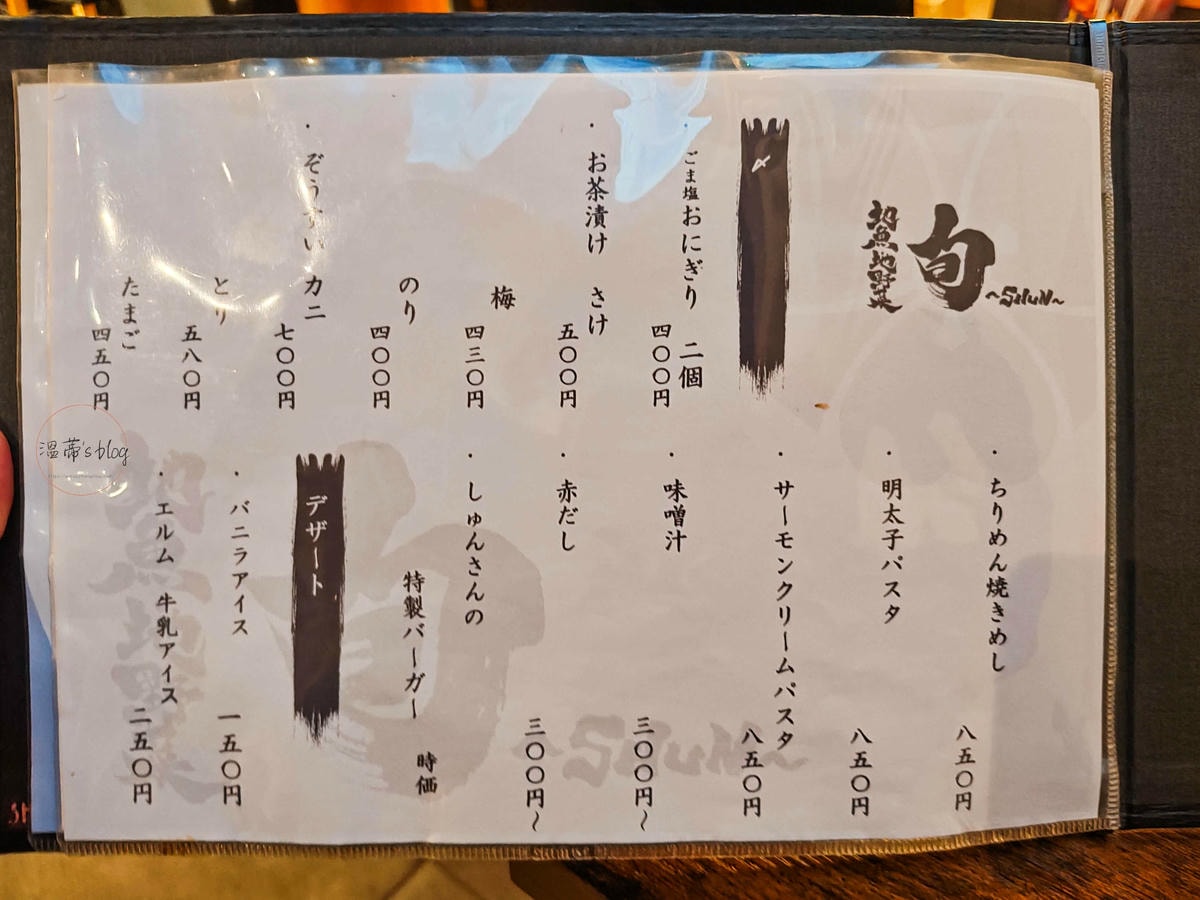 旬
~SHUN~
鮮魚地野菜
〆
・ごま塩おにぎり 二個 四〇〇円
・お茶漬け さけ 五〇〇円
梅 四三〇円
のり 四〇〇円
・ぞうすい カニ 七〇〇円
とり 五八〇円
たまご 四五〇円
・ちりめん焼きめし 八五〇円
・明太子パスタ 八五〇円
・サーモンクリームパスタ 八五〇円
・味噌汁 三〇〇円~
・赤だし 三〇〇円~
・しゅんさんの
特製バーガー 時価
デザート
・バニラアイス 一五〇円
・エルム 牛乳アイス 二五〇円
溫蒂's blog